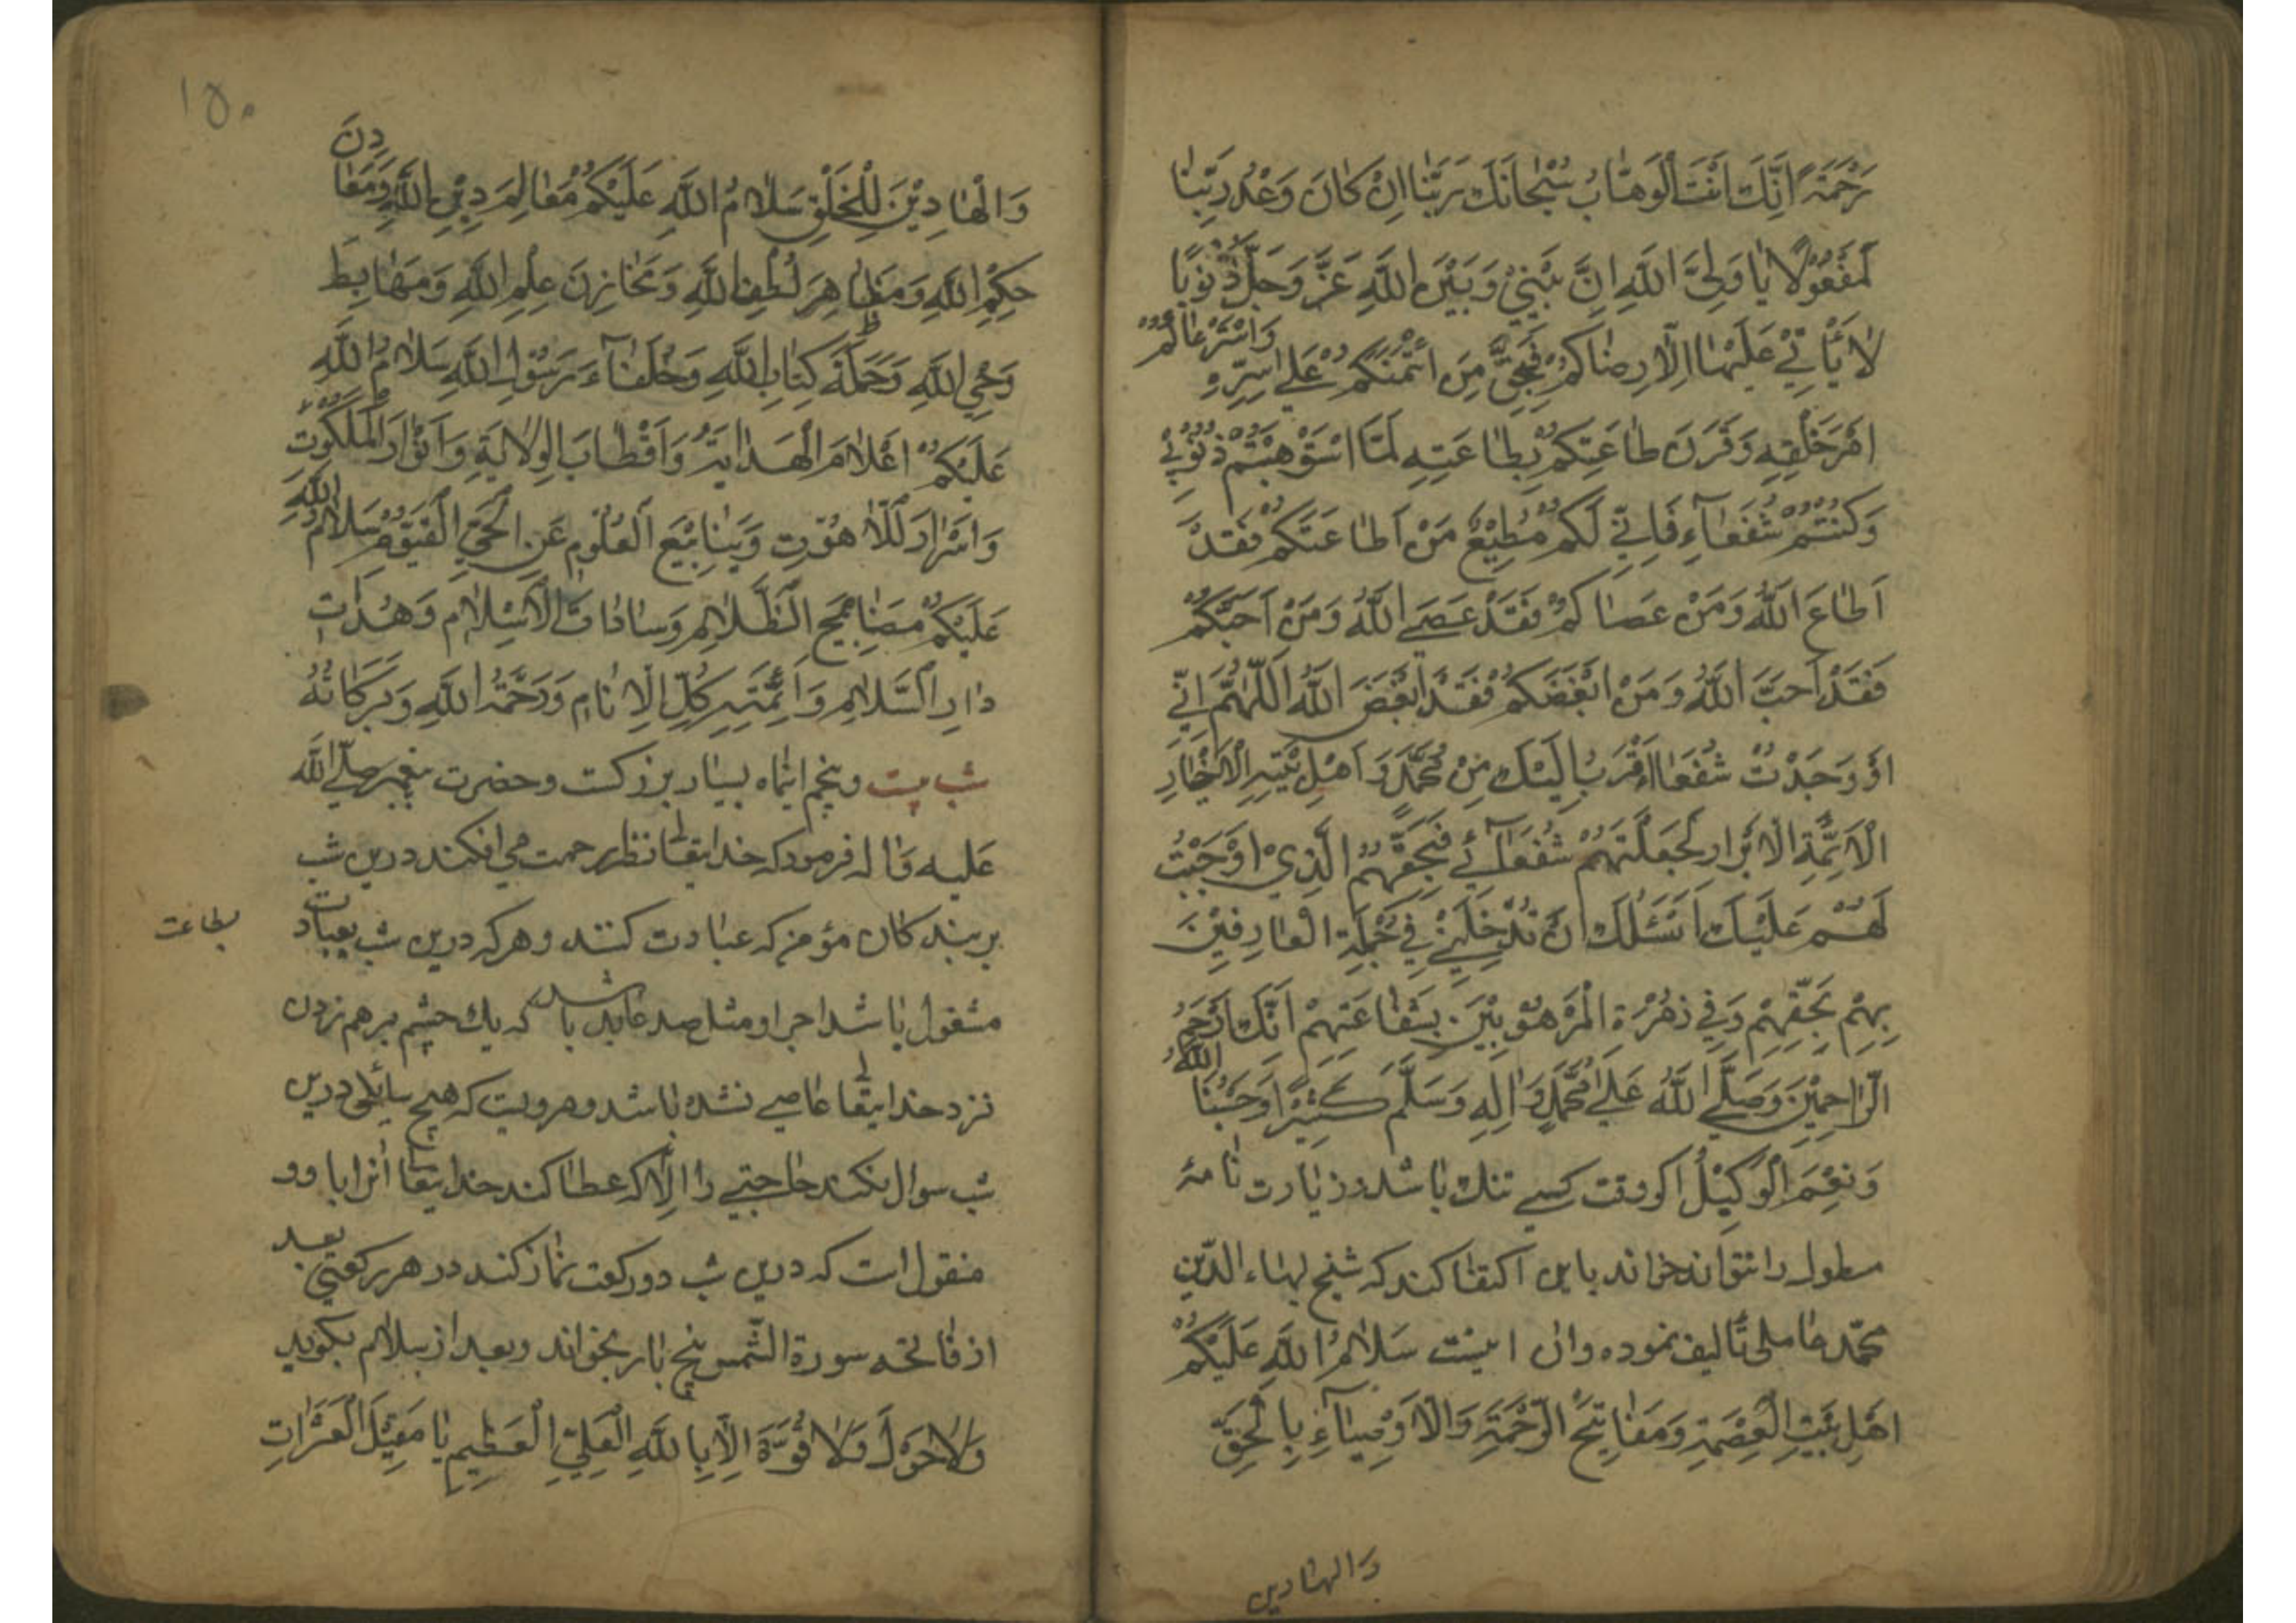 رَحْمَةً اِنَّكَ اَنْتَ الْوَهّابُ سُبْحانَكَ رَبَّنا اِنْ كانَ وَعْدُ رَبِّنا
لَمَفْعُوْلًا يا وَلِيَّ اللَّهِ اِنَّ بَيْنِيْ وَبَيْنَ اللَّهِ عَزَّ وَجَلَّ ذُنُوْبًا
لا يَأْتِيْ عَلَيْها اِلّا رِضاكُمْ فَبِحَقِّ مَنِ ائْتَمَنَكُمْ عَلي سِرِّهِ وَاسْتَرْعاكُمْ
اَمْرَ خَلْقِهِ وَقَرَنَ طاعَتَكُمْ بِطاعَتِهِ لَمَّا اسْتَوْهَبْتُمْ ذُنُوْبِيْ
وَكُنْتُمْ شُفَعآءِ فَاِنِّيْ لَكُمْ مُطِيْعٌ مَنْ اَطاعَكُمْ فَقَدْ
اَطاعَ اللَّهَ وَمَنْ عَصاكُمْ فَقَدْ عَصَي اللَّهَ وَمَنْ اَحَبَّكُمْ
فَقَدْ اَحَبَّ اللَّهَ وَمَنْ اَبْغَضَكُمْ فَقَدْ اَبْغَضَ اللَّهَ اَللّهُمَّ اِنِّيْ
لَوْ وَجَدْتُ شُفَعاءَ اَقْرَبَ اِلَيْكَ مِنْ مُحَمَّدٍ وَ اَهْلِ بَيْتِهِ الْاَخْيارِ
الْاَئِمَّةِ الْاَبْرارِ لَجَعَلْتُهُمْ شُفَعآئِيْ فَبِحَقِّهِمُ الَّذِيْ اَوْجَبْتَ
لَهُمْ عَلَيْكَ اَسْئَلُكَ اَنْ تُدْخِلَنِيْ فِيْ جُمْلَةِ الْعارِفِيْنَ
بِهِمْ بِحَقِّهِمْ وَفِيْ زُمْرَةِ الْمَرْهُوْبِيْنَ بِشَفاعَتِهِمْ اِنَّكَ اَرْحَمُ
الرّاحِمِيْنَ وَصَلَّي اللَّهُ عَلي مُحَمَّدٍ وَالِهِ وَسَلَّمَ كَثِيْرًا وَحَسْبُنَا اللَّهُ
وَنِعْمَ الْوَكِيْلُ اكر وقت كسي تنك باشد و زيارت نامهٔ
مطول را نتواند خواند باين اكتفا كند كه شيخ بهاء الدّين
محمّد عاملي تأليف نموده وان اينست سَلامُ اللَّهِ عَلَيْكُمْ
اَهْلَ بَيْتِ الْعِصْمَةِ وَمَفاتِيْحَ الرَّحْمَةِ وَالْاَوْصِيآءِ بِالْحَقِّ
وَالهادين
١٥٠
وَالْهادِيْنَ لِلْخَلْقِ سَلامُ اللَّهِ عَلَيْكُمْ مَعالِمَ دِيْنِ اللَّهِ وَمَعادِنَ
حِكَمِ اللَّهِ وَمَظاهِرَ لُطْفِ اللَّهِ وَمَخازِنَ عِلْمِ اللَّهِ وَمَهابِطَ
وَحْيِ اللَّهِ وَحَمَلَةَ كِتابِ اللَّهِ وَخُلَفآءَ رَسُوْلِ اللَّهِ سَلامُ اللَّهِ
عَلَيْكُمْ اَعْلامَ الْهِدايَةِ وَاَقْطابَ الْوِلايَةِ وَاَنْوارَ الْمَلَكُوْتِ
وَاَسْرارَ اللّاهُوْتِ وَيَنابِيْعَ الْعُلُوْمِ عَنِ الْحَيِّ الْقَيُّوْمِ سَلامُ اللَّهِ
عَلَيْكُمْ مَصابِيْحَ الظَّلامِ وَساداتَ الْاِسْلامِ وَهُداتِ
دارِ السَّلامِ وَاَئِمَّتِهِ كُلِّ الْاَنامِ وَرَحْمَةُ اللَّهِ وَبَرَكاتُهُ
شب بيست وپنجم اينماه بسيار بزركست وحضرت پيغمبر صلّي اللَّه
عليه وآله فرمود كه خدايتعالي نظر رحمت مي افكند درين شب
بر بندكان مؤمن كه عبادت كنند و هركه درين شب بعبادت
بطاعت
مشغول باشد اجر او مثل صد عابد باشد كه يك چشم برهم زدن
نزد خدايتعا عاصي نشده باشد ومرويست كه هيچ سائلي درين
شب سوال نكند حاجتي را الّا كه عطا كند خدايتعا انرا باو و
منقول است كه درين شب دو ركعت نماز كند در هر ركعتي بعد
از فاتحه سورة الشّمس پنج بار بخواند وبعد از سلام بكويد
وَلا حَوْلَ وَلا قُوَّةَ اِلّا بِاللَّهِ الْعَلِيِّ الْعَظِيمِ يا مُقِيْلَ الْعَثَراتِ